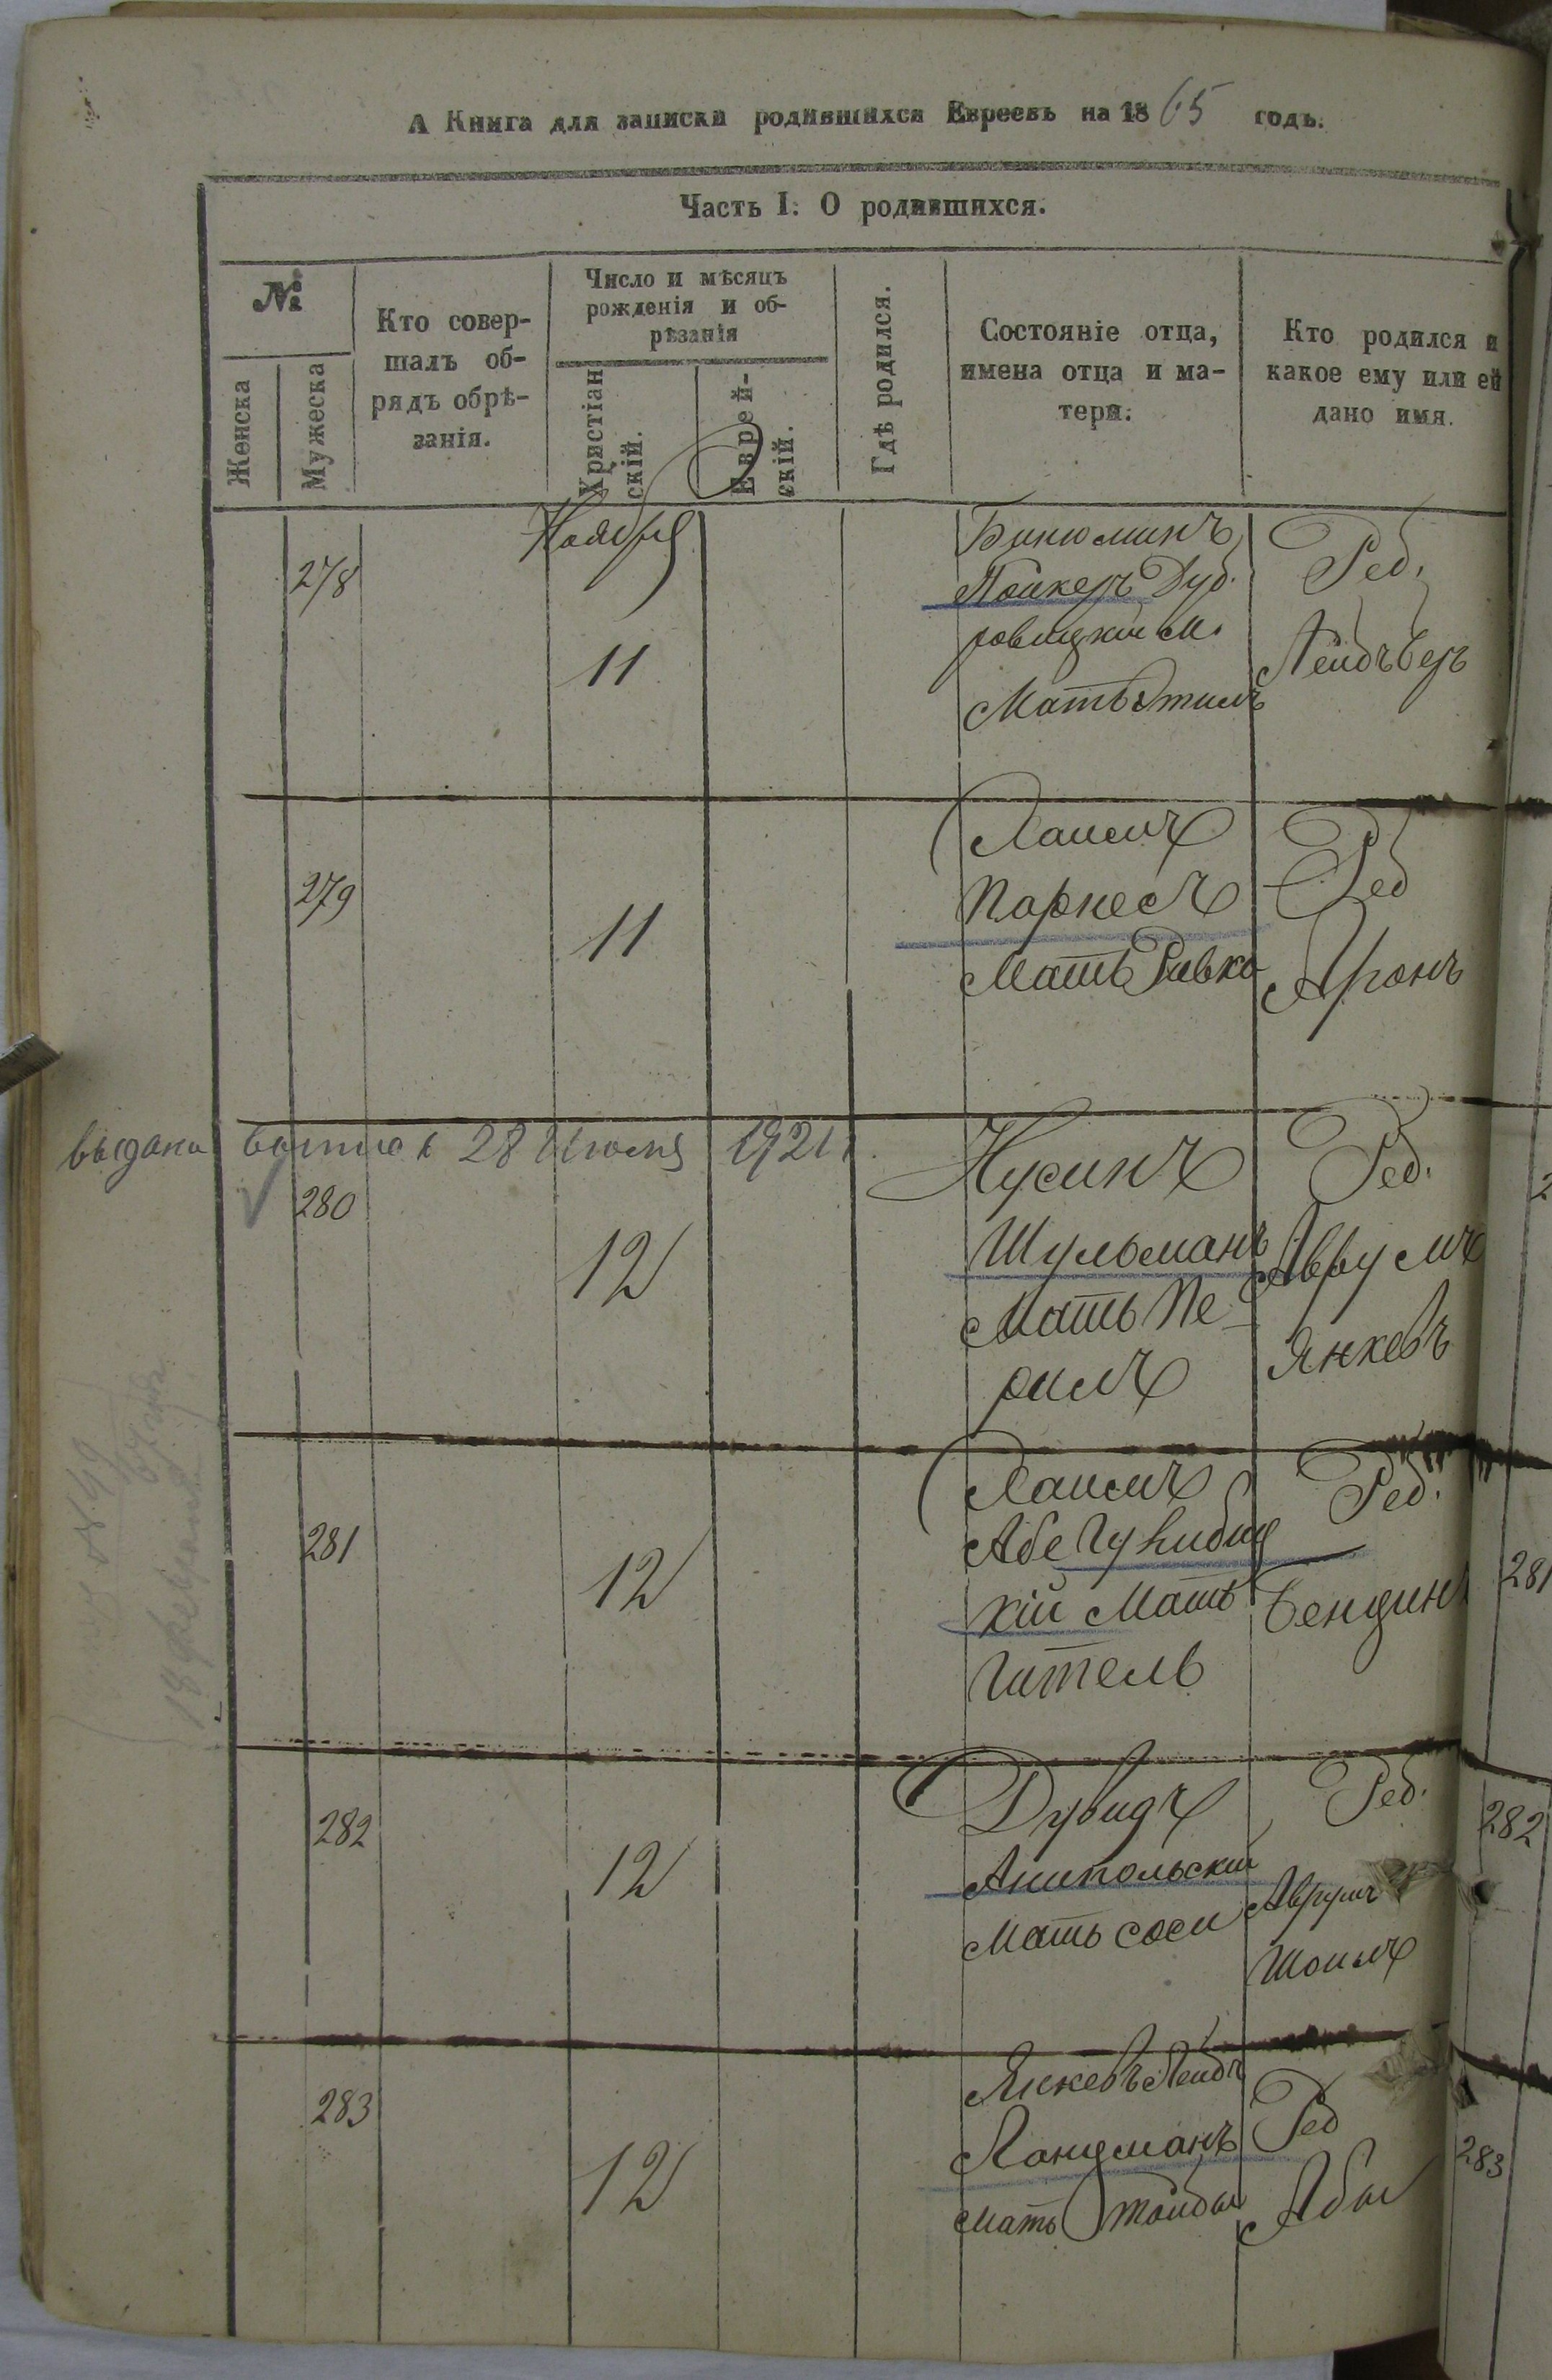 А Книга для записки родившихся Евреевъ на 1865 годъ.
Часть I. О родившихся.
№
Женска
Мужеска
Кто совер-
шалъ об-
рядъ обрѣ-
занія.
Число и мѣсяцъ
рожденія и об-
рѣзанія
Христіан
скій.
Еврей-
скій.
Гдѣ родился.
Состояніе отца,
имена отца и ма-
тери.
Кто родился и
какое ему или ей
дано имя.
Ноября
278
11
Бинюминъ
Пойкеръ Дуб.
ровицкій М.
Мать Этиль
Реб.
Лейбъ Беръ
279
11
Хаимъ
Парнесъ
Мать Ривка
Реб
Аронъ
выдана 28 Июня 1921
280
12
Нусинъ
Шульманъ
Мать Пе-
рилъ
Реб.
Аврумъ
Янкевъ
281
12
Хаимъ
Абе
кій Мать
Гитель
Реб.
Бенционъ
281
282
12
Дувидъ
Анипольскій
Мать соси
Реб.
Аврумъ
282
283
12
Янкевъ Лейбъ
Ланцманъ
Мать Тойбы
Реб
Абы
283
18 февраля